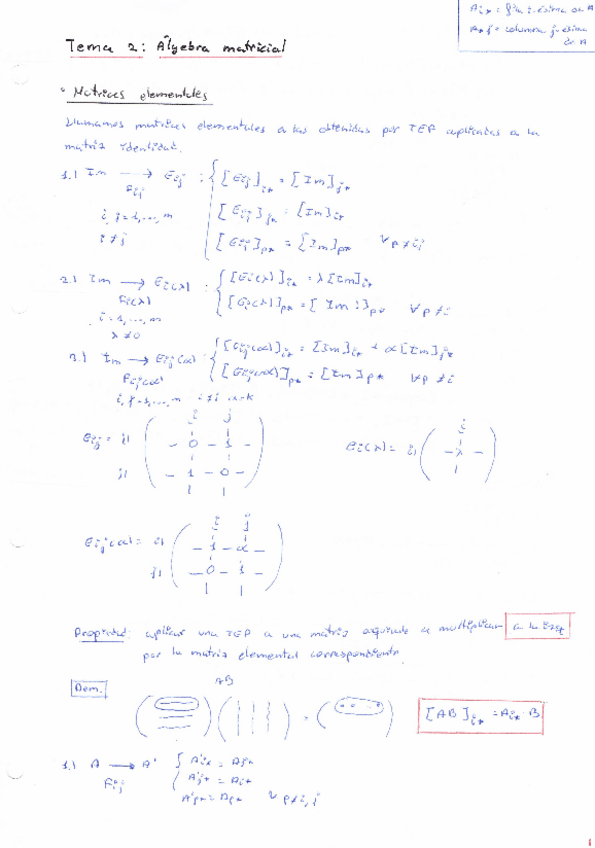 A_{i*} = fila i-ésima de A
A_{*j} = columna j-ésima de A
Tema 2: Álgebra matricial
• Matrices elementales
Llamamos matrices elementales a las obtenidas por TEF aplicadas a la
matriz identidad.
1.) Im → Eij : { [Eij]_{i*} = [Im]_{j*}
Fij
i, j = 1,...,m [Eij]_{j*} = [Im]_{i*}
i ≠ j [Eij]_{p*} = [Im]_{p*} ∀p ≠ i,j
2.) Im → Ei(λ) : { [Ei(λ)]_{i*} = λ[Im]_{i*}
Fi(λ) [Ei(λ)]_{p*} = [Im]_{p*} ∀p ≠ i
i = 1,...,m
λ ≠ 0
3.) Im → Eij(α) : { [Eij(α)]_{i*} = [Im]_{i*} + α[Im]_{j*}
Fij(α) [Eij(α)]_{p*} = [Im]_{p*} ∀p ≠ i
i, j = 1,...,m i ≠ j
i j
Eij = i) 0 1
j) 1 0
i
Ei(λ) = i) λ
i j
Eij(α) = i) 1 α
j) 0 1
Propiedad: aplicar una TEF a una matriz equivale a multiplicar a la izq
por la matriz elemental correspondiente.
AB
Dem.
[AB]_{i*} = A_{i*} · B
1.) A → A' { A'_{i*} = A_{j*}
Fij A'_{j*} = A_{i*}
A'_{p*} = A_{p*} ∀p ≠ i, j
1